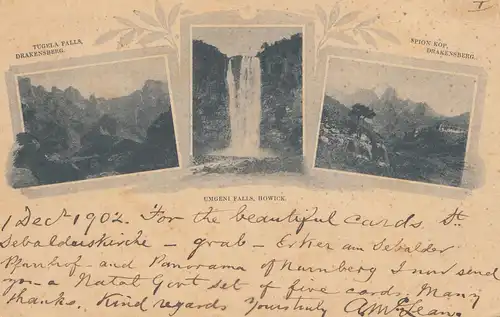 I
TUGELA FALLS,
DRAKENSBERG.
SPION KOP,
DRAKENSBERG.
UMGENI FALLS, HOWICK.
1 Dec^r 1902. For the beautiful cards, St.
Sebalduskirche – grab – Erker am Sebalder
Pfarrhof and Panorama of Nurnberg I now send
you a Natal Govt set of five cards. Many
thanks. Kind regards Yours truly A McLean